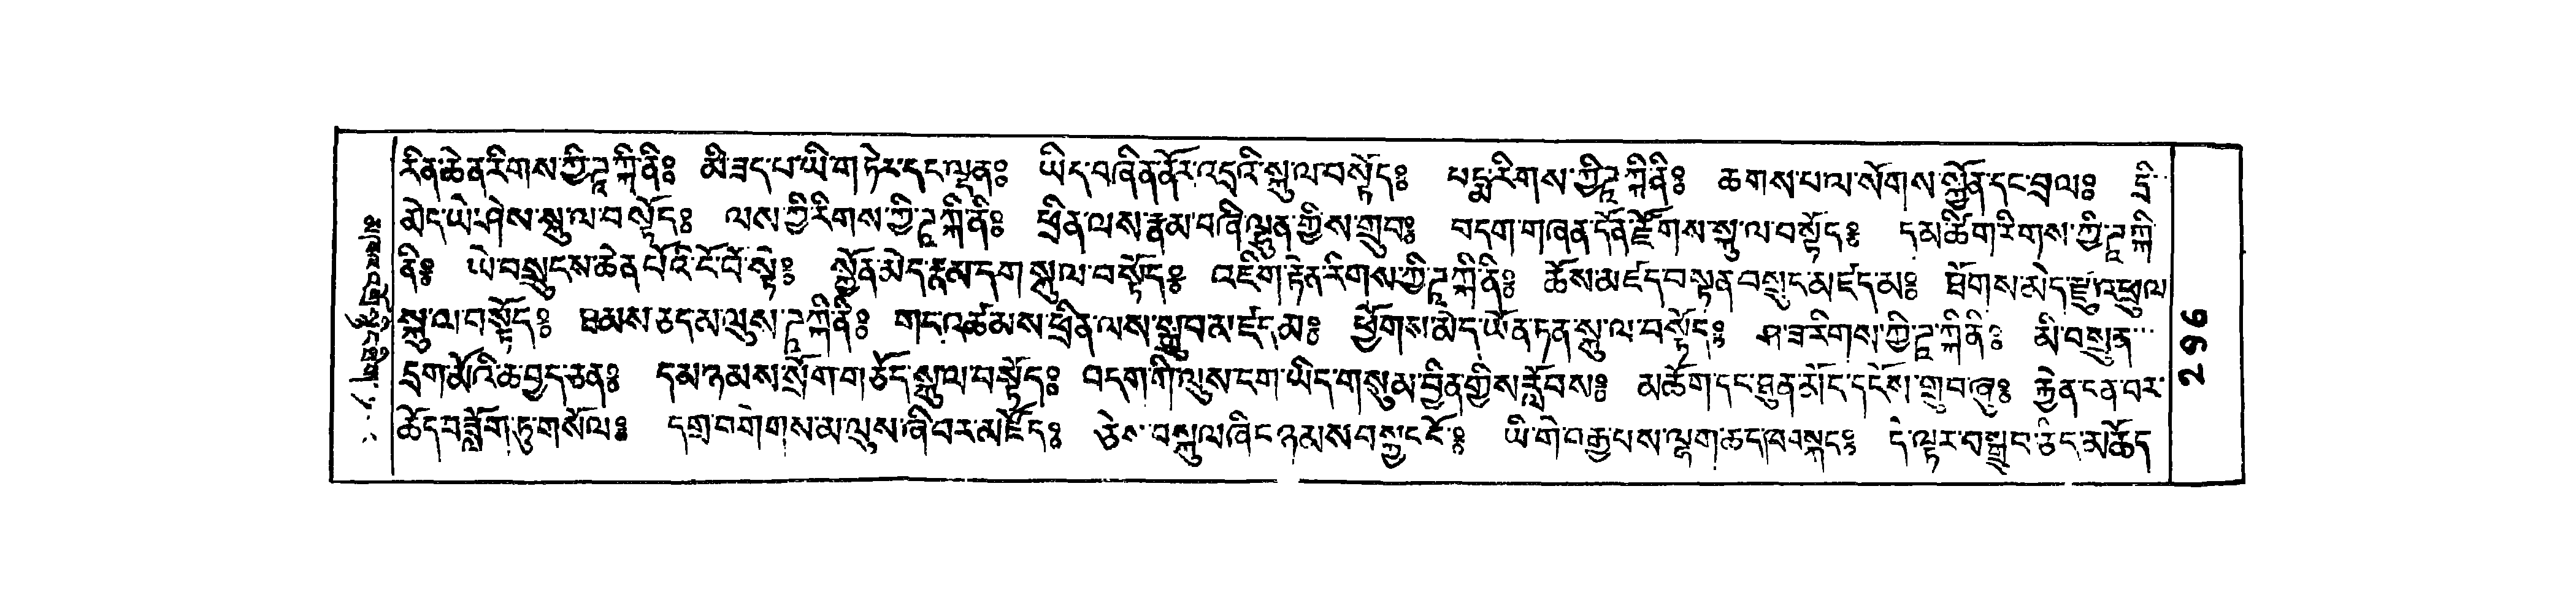 རིན་ཆེན་རིགས་ཀྱི་ཌཱ་ཀི་ནི༔ མི་ཟད་པ་ཡི་གཏེར་དང་ལྡན༔ ཡིད་བཞིན་ནོར་འདྲའི་སྐུ་ལ་བསྟོད༔ པདྨ་རིགས་ཀྱི་ཌཱཀི་ནི༔ ཆགས་པ་ལ་སོགས་སྐྱོན་དང་བྲལ༔ དྲི་
མེད་ཡེ་ཤེས་སྐུ་ལ་བསྟོད༔ ལས་ཀྱི་རིགས་ཀྱི་ཌཱ་ཀི་ནི༔ ཕྲིན་ལས་རྣམ་བཞི་ལྷུན་གྱིས་གྲུབ༔ བདག་གཞན་དོན་རྫོགས་སྐུ་ལ་བསྟོད༔ དམ་ཚིག་རིགས་ཀྱི་ཌཱ་ཀི་
ནི༔ ཡེ་བསྲུངས་ཆེན་པོའི་ངོ་བོ་སྟེ༔ སྐྱོན་མེད་རྣམ་དག་སྐུ་ལ་བསྟོད༔ འཇིག་རྟེན་རིགས་ཀྱི་ཌཱ་ཀི་ནི༔ ཆོས་མཛད་བསྟན་བསྲུང་མཛད་མ༔ ཐོགས་མེད་རྫུ་འཕྲུལ་
སྐུ་ལ་བསྟོད༔ ཐམས་ཅད་མ་ལུས་ཌཱཀི་ནི༔ གང་འཚམས་ཕྲིན་ལས་སྒྲུབ་མཛད་མ༔ ཕྱོགས་མེད་ཡོན་ཏན་སྐུ་ལ་བསྟོད༔ ཤ་ཟ་རིགས་ཀྱི་ཌཱ་ཀི་ནི༔ མི་བསྲུན་
དྲག་མོའི་ཆ་བྱད་ཅན༔ དམ་ཉམས་སྲོག་གཅོད་སྐུ་ལ་བསྟོད༔ བདག་གི་ལུས་ངག་ཡིད་གསུམ་བྱིན་གྱིས་རློབས༔ མཆོག་དང་ཐུན་མོང་དངོས་གྲུབ་ཞུ༔ རྐྱེན་ངན་བར་
ཆོད་བཟློག་ཏུ་གསོལ༔ དགྲ་བགེགས་མ་ལུས་ཞི་བར་མཛོད༔ ཅེས་བསྐུལ་ཞིང་ཉམས་བསྐང་ངོ༔ ཡི་གེ་བརྒྱ་པས་ལྷག་ཆད་བསྐང༔ དེ་ལྟར་བསྒྲུབ་ཅིང་མཆོད